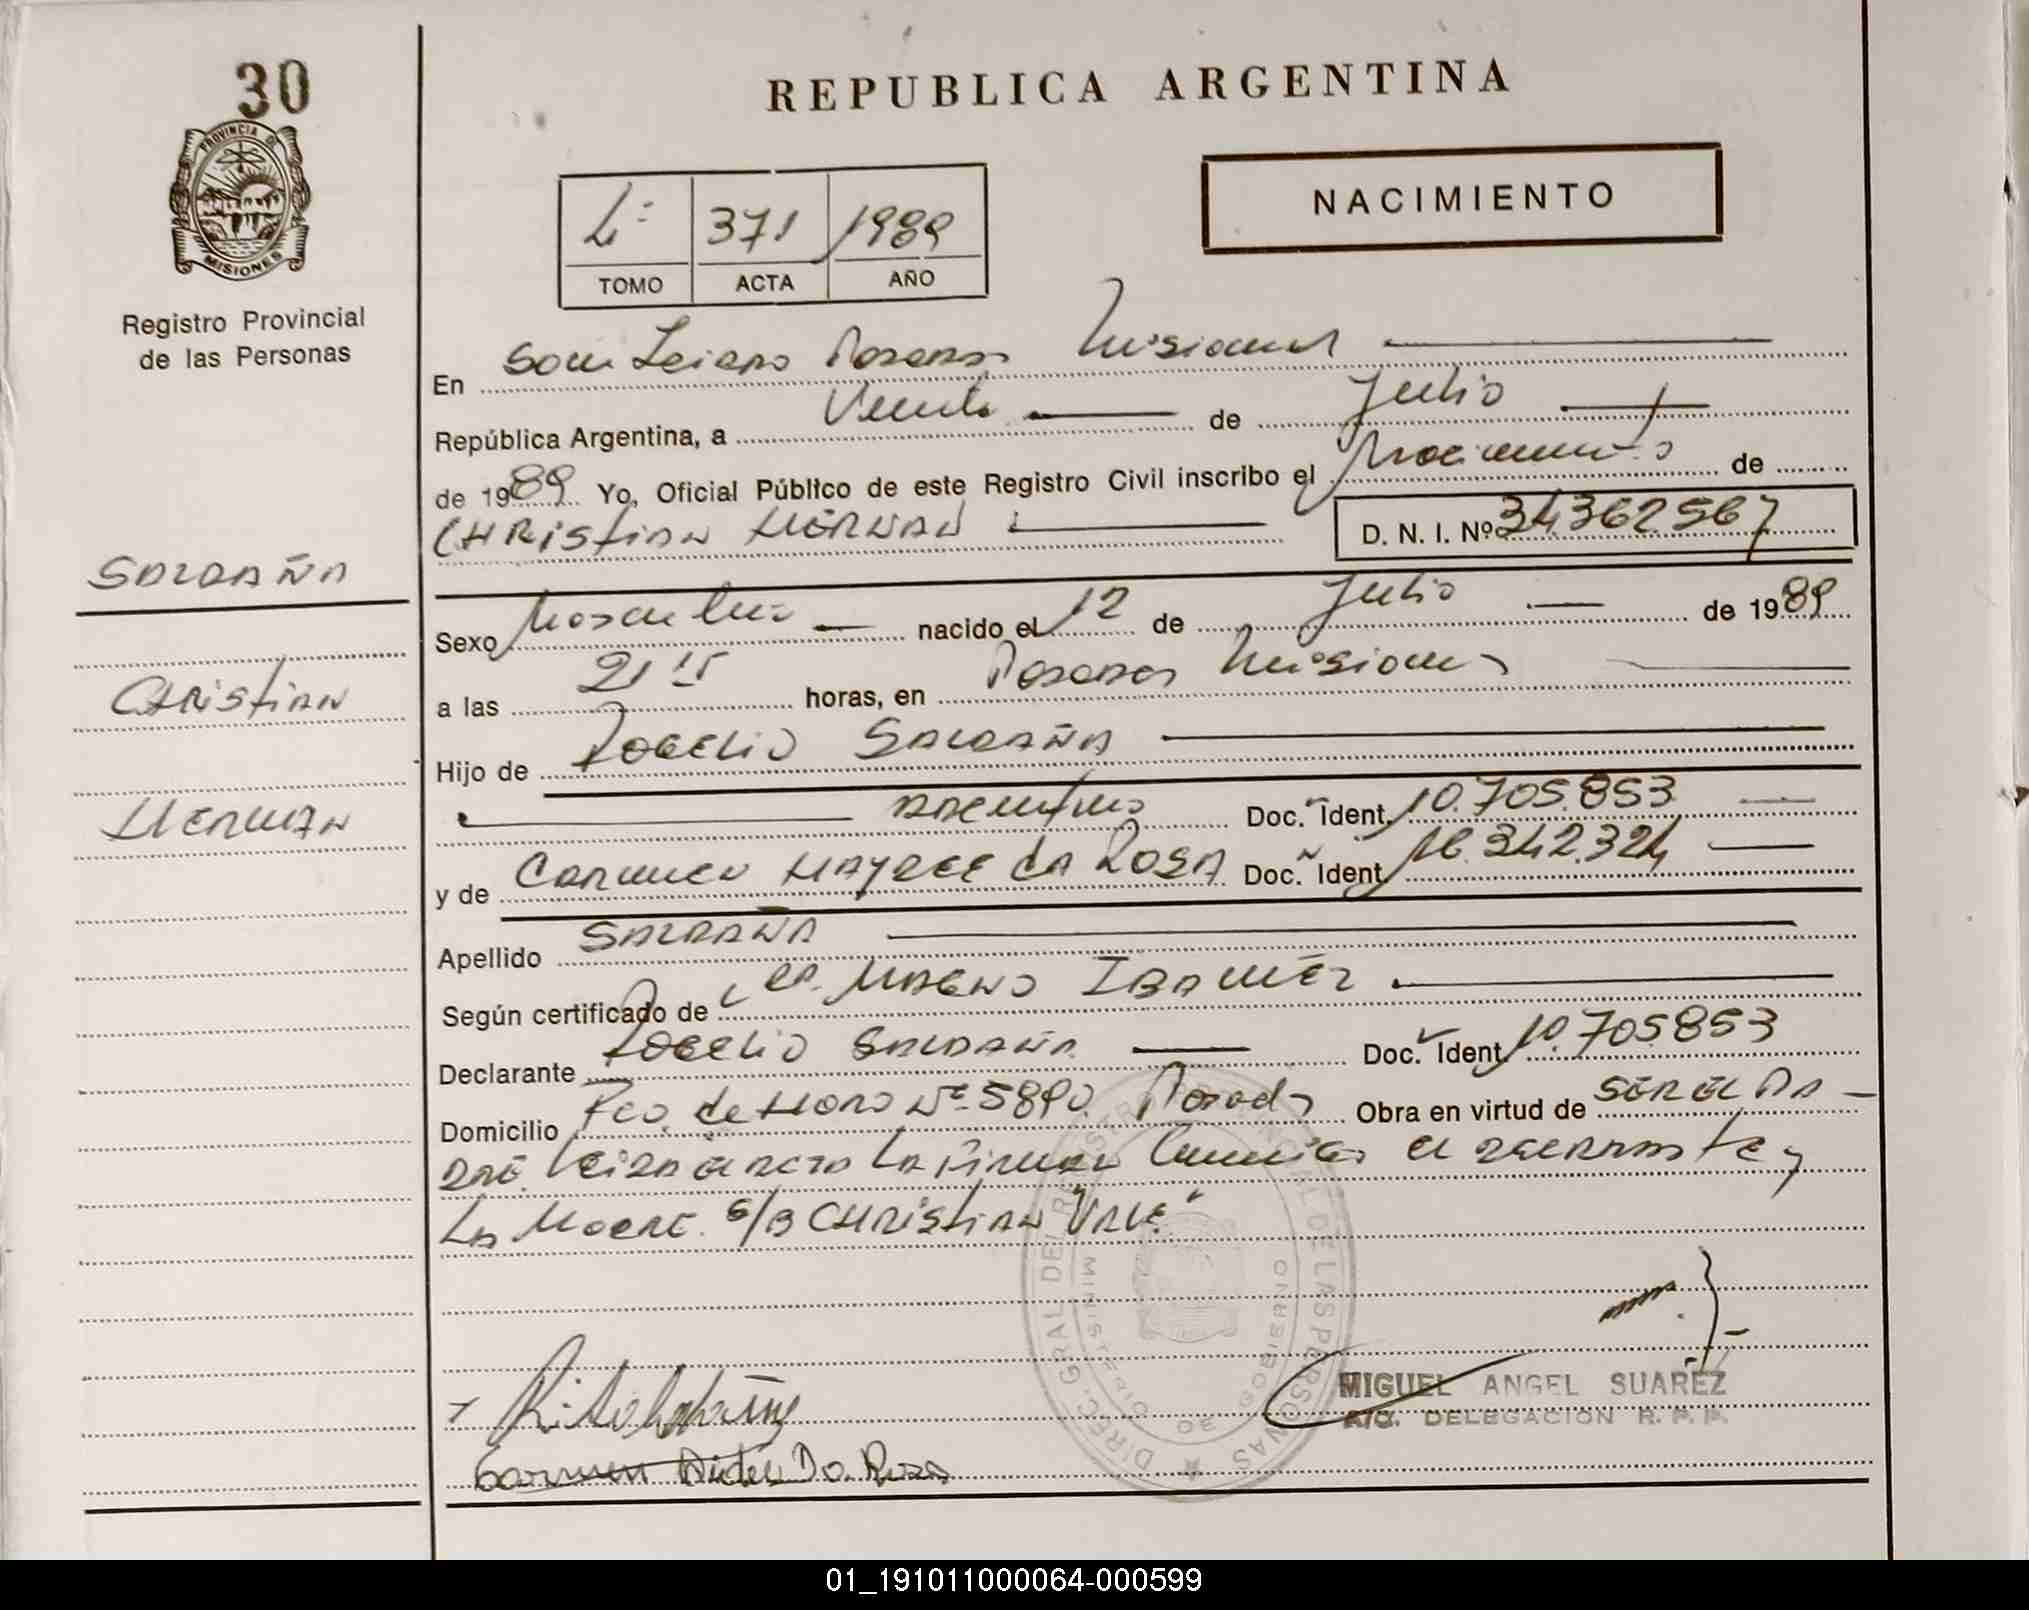 30
REPUBLICA ARGENTINA
PROVINCIA DE
MISIONES
Registro Provincial
de las Personas
371 1989
TOMO ACTA AÑO
NACIMIENTO
En Posadas Misiones
República Argentina, a Veinte de Julio
de 1989 Yo, Oficial Público de este Registro Civil inscribo el Nacimiento de
CHRistian HERNAN D. N. I. Nº 34362567
SALDAÑA
CHRistian
HERNAN
Sexo Masculino nacido el 12 de Julio de 1989
a las 21 15 horas, en Posadas Misiones
Hijo de ROGELIO SALDAÑA
ARGENTINO Doc. Ident. 10.705.853
y de CARMEN HAYDEE DA ROSA Doc. Ident. 16.342.324
Apellido SALDAÑA
Según certificado de MAGNO IBAÑEZ
Declarante ROGELIO SALDAÑA Doc. Ident. 10.705853
Domicilio Pco. de HARO Nº 5890 Posadas Obra en virtud de SER EL PA-
DRE Leida el acta La Firman Conmigo el declarante y
La MADRE. S/B CHRistian "VALE"
DIREC. GRAL DEL REGISTRO PROVINCIAL DE LAS PERSONAS
MINISTERIO DE GOBIERNO
MIGUEL ANGEL SUAREZ
A/C. DELEGACION R. P. P.
Carmen Da Rosa
01_191011000064-000599